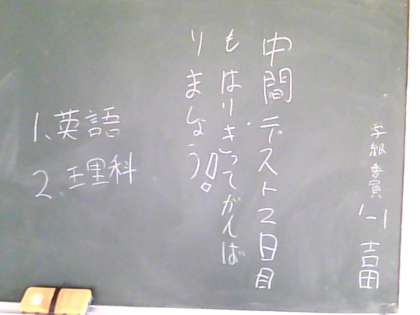 学級委員 1-1 吉田
中間テスト2日目
もはりきってがんば
りましょう!!
1.英語
2.理科